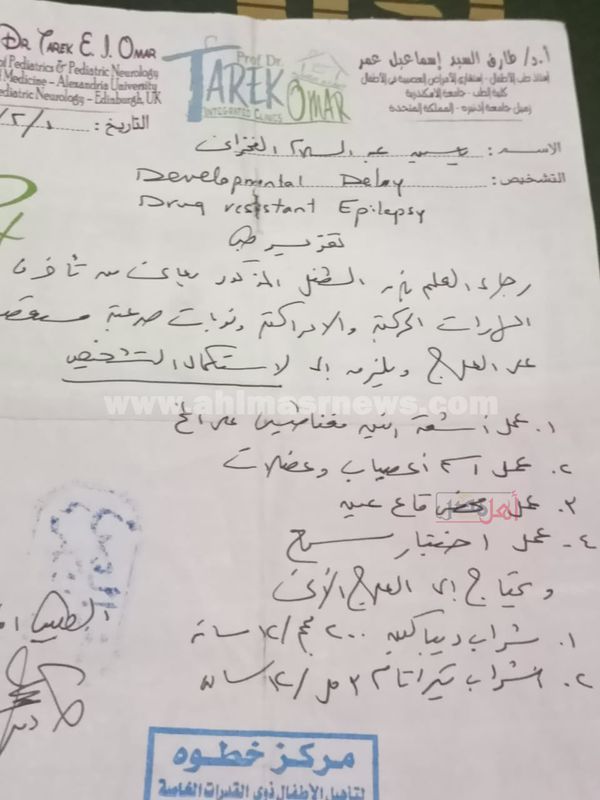 DR TAREK E. I. OMAR
of Pediatrics & Pediatric Neurology
f Medicine - Alexandria University
ediatric Neurology - Edinburgh, UK
Prof Dr.
TAREK
OMAR
INTEGRATED CLINICS
أ.د/ طارق السيد إسماعيل عمر
أستاذ طب الأطفال - إستشاري الأمراض العصبية في الأطفال
كلية الطب - جامعة الإسكندرية
زميل جامعة إدنبره - المملكة المتحدة
التاريخ :
الاسم : عبد السلام
التشخيص : Developmental Delay
Drug resistant Epilepsy
تقرير طبى
رجاء العلم بأن الطفل المذكور يعانى من تأخر فى
المهارات الحركية والادراكية ونوبات صرعية
على العلاج ويلزمه لاستكمال التشخيص
www.ahlmasrnews.com
١. عمل أشعة رنين مغناطيسى على المخ
٢. عمل رسم أعصاب وعضلات
٣. عمل قاع عين
أهل مصر
٤- عمل اختبار سمع
ويحتاج إلى العلاج الآتى
١. شراب ديباكين ٢٠٠ مجم / ١٢ ساعة
٢. شراب تيراتام ٣ مل / ١٢ ساعة
مركز خطوه
لتأهيل الأطفال ذوى القدرات الخاصة